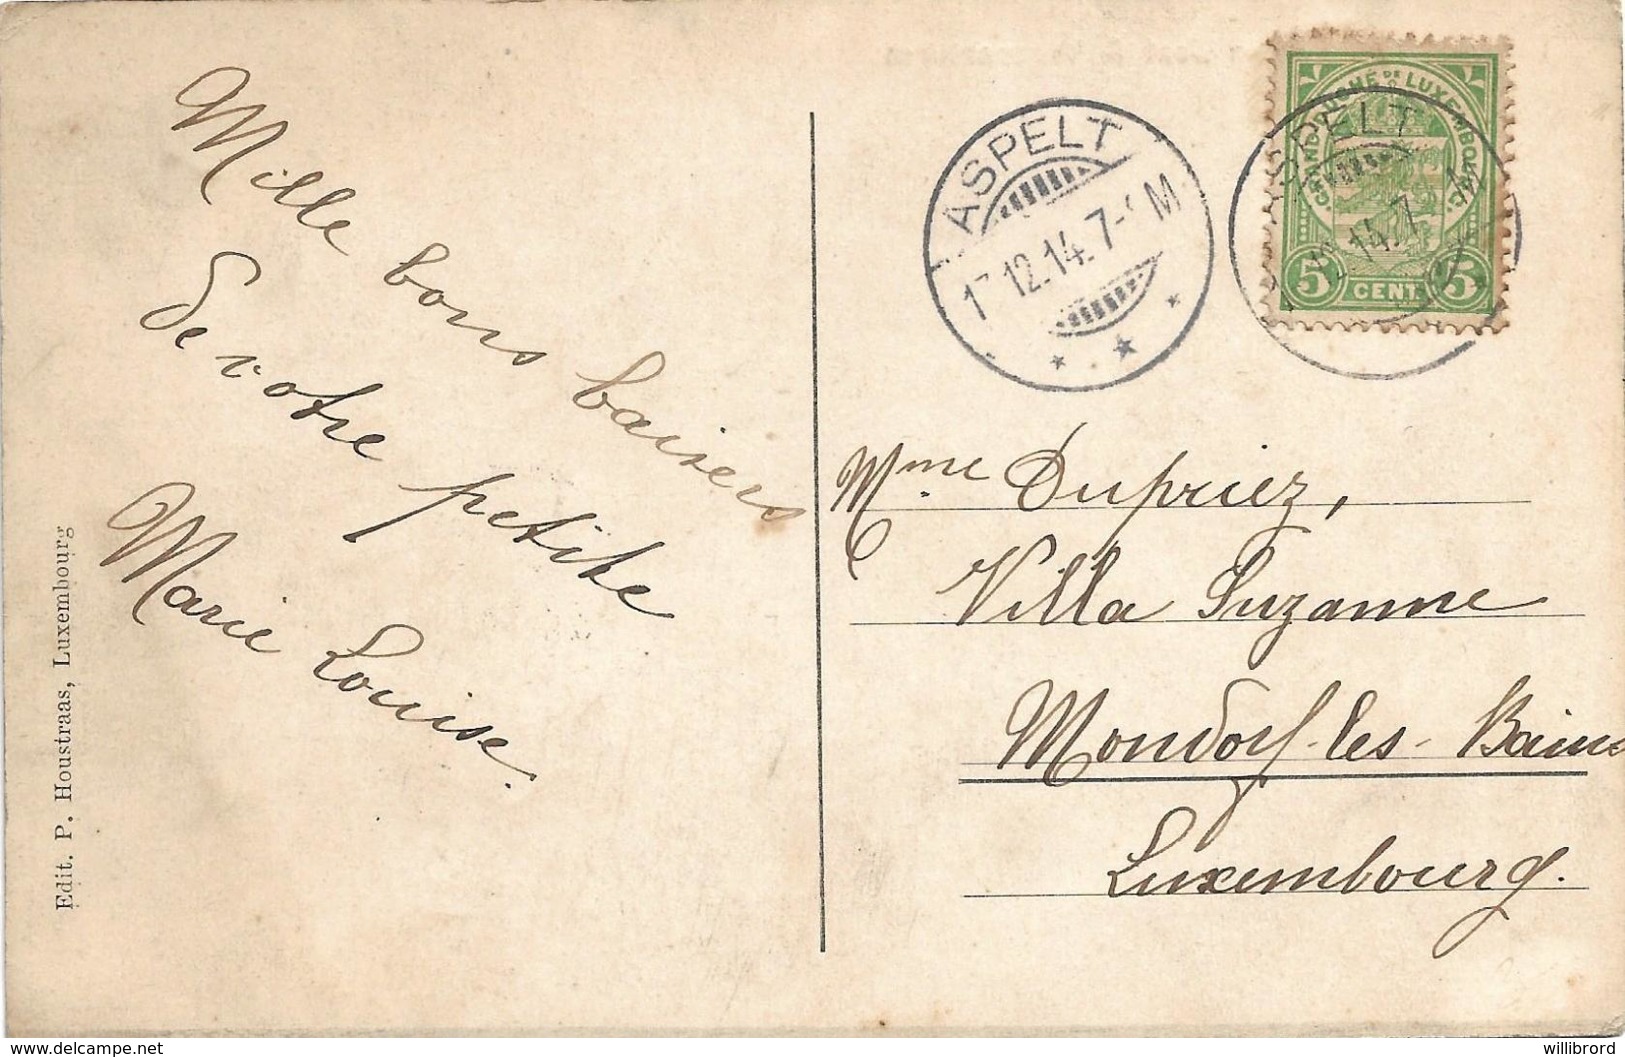 Mille bons baisers
de votre petite
Marie Louise.
Edit. P. Houstraas, Luxembourg
ASPELT
12.14. 7- M
GRAND DUCHÉ DE LUXEMBOURG
ASPELT
12.14. 7
5 CENT. 5
Mme Dupriez,
Villa Suzanne
Mondorf-les-Bains
Luxembourg.
© www.delcampe.net
willibrord